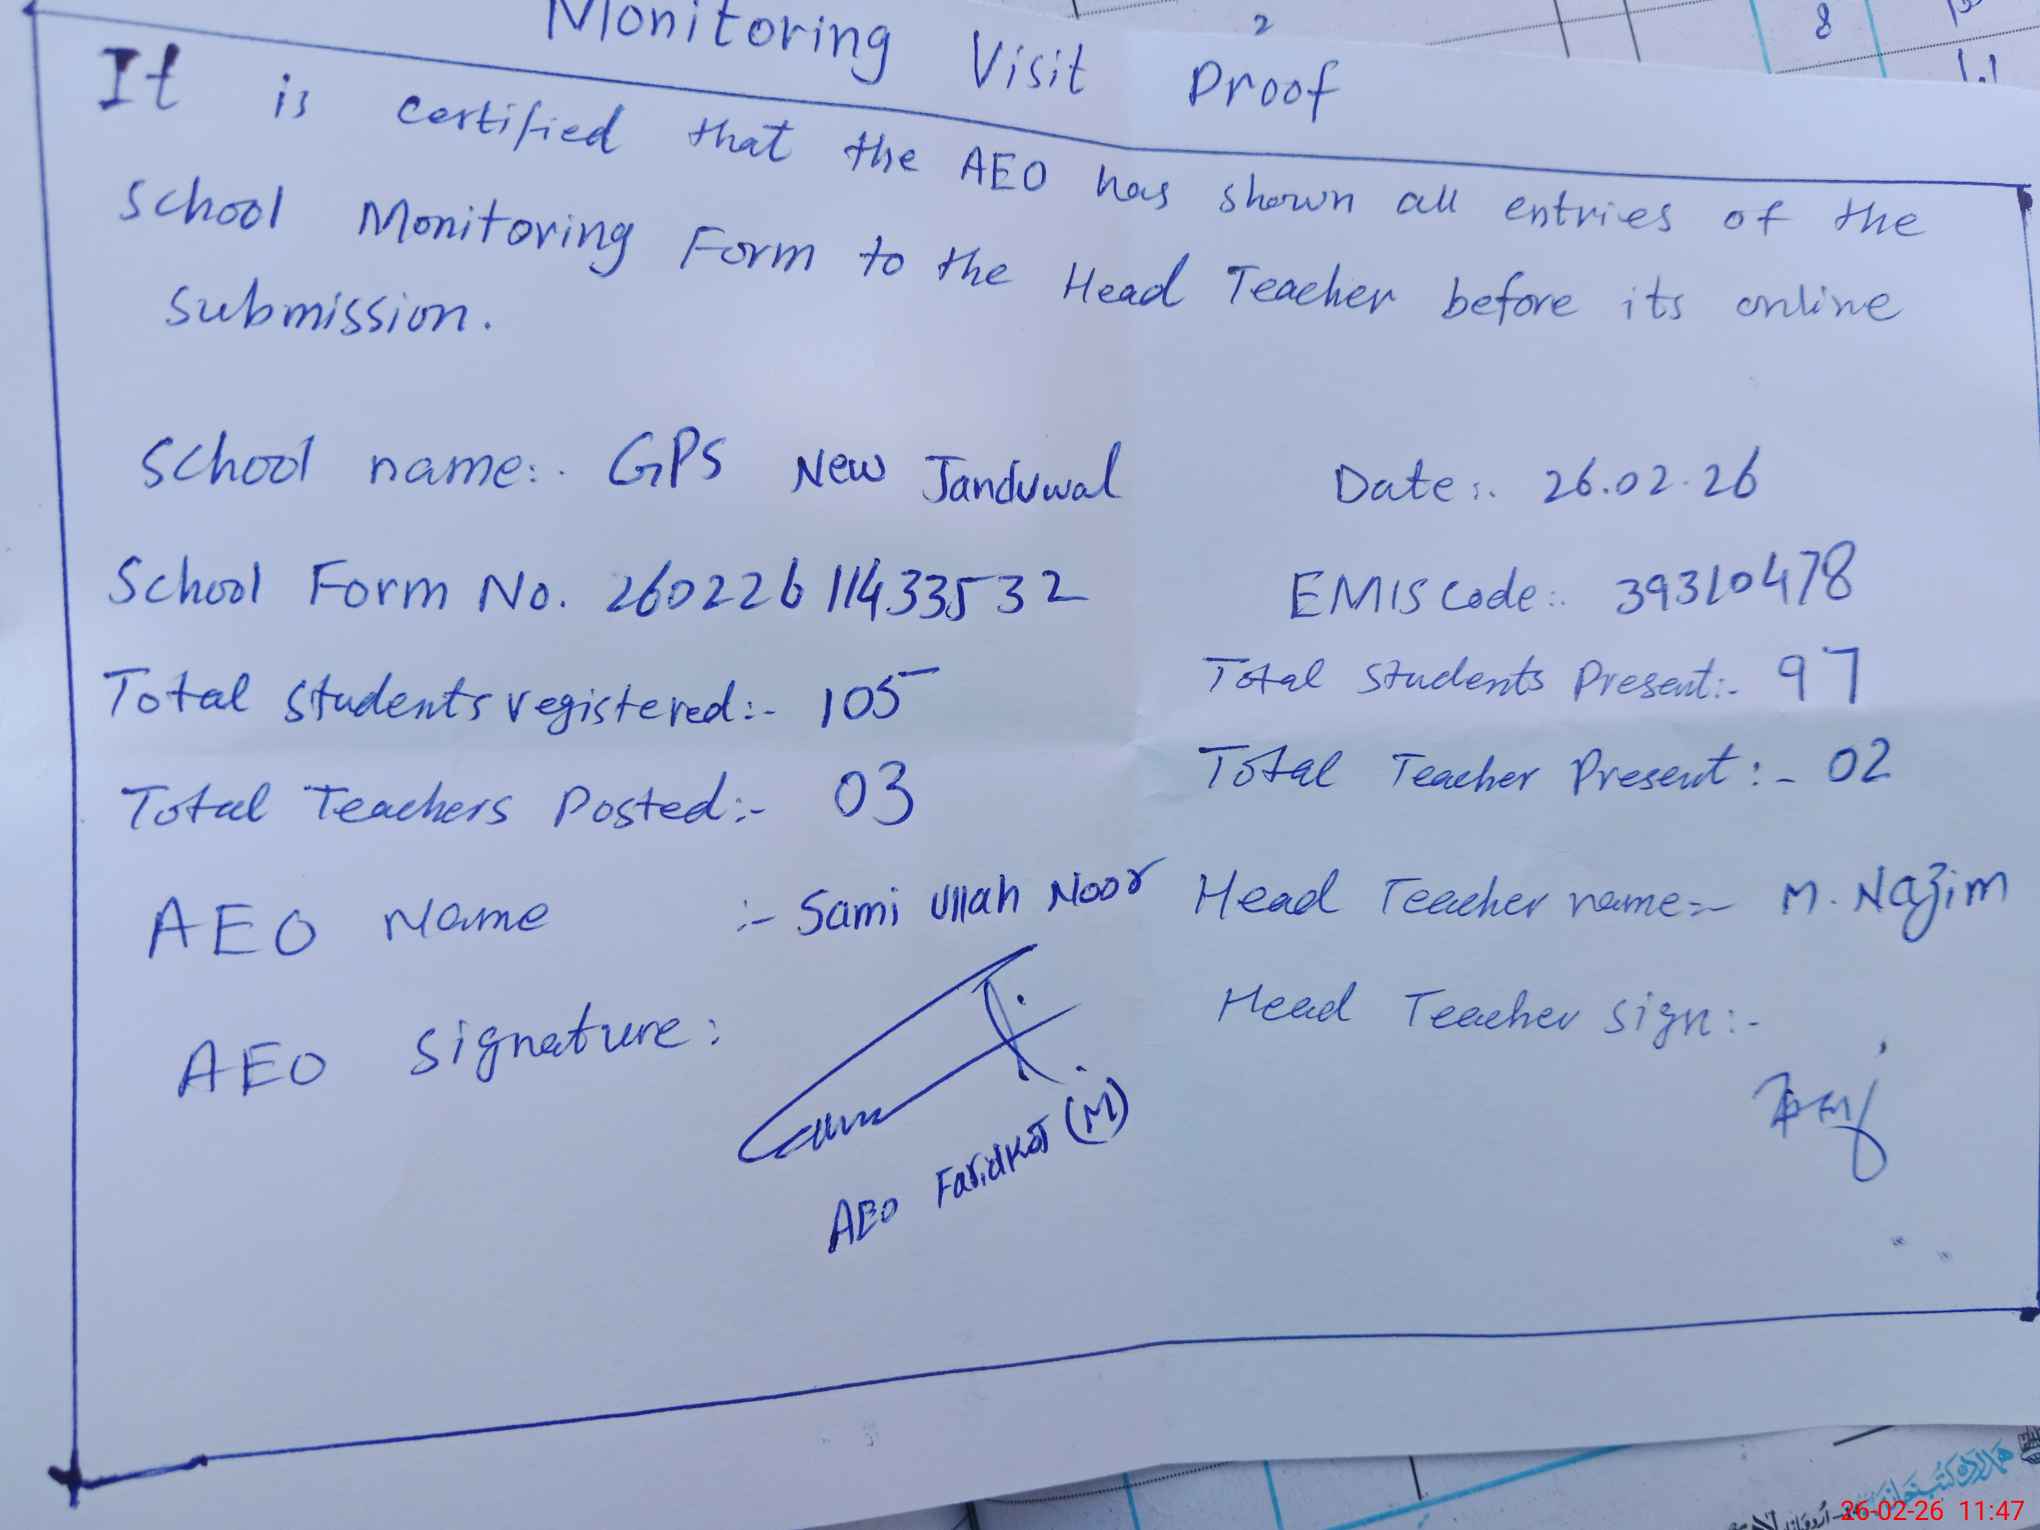 2
8
Monitoring Visit Proof
It is certified that the AEO has shown all entries of the
School Monitoring Form to the Head Teacher before its online
submission.
School name:. GPS New Janduwal Date:. 26.02.26
School Form No. 26022611433532 EMIS Code:. 39310478
Total students registered:- 105 Total Students Present:- 97
Total Teachers Posted:- 03 Total Teacher Present:- 02
AEO Name :- Sami Ullah Noor Head Teacher name:- M. Nazim
AEO signature: Head Teacher sign:-
AEO Faridkot (M)
26-02-26 11:47